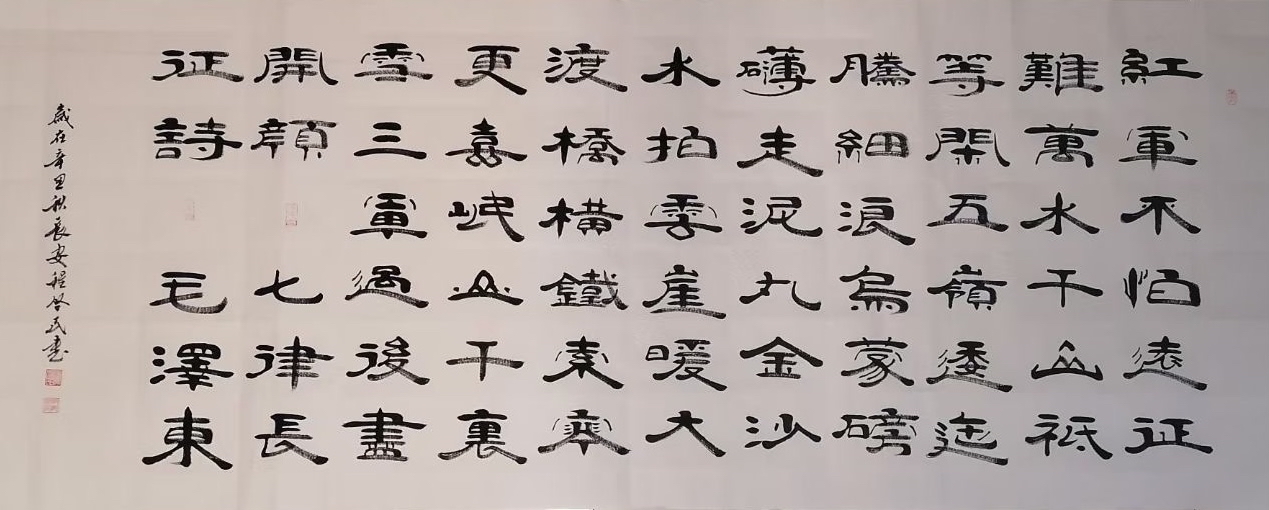 紅軍不怕遠征
難萬水千山祇
等閑五嶺逶迤
騰細浪烏蒙磅
礴走泥丸金沙
水拍雲崖暖大
渡橋橫鐵索寒
更喜岷山千裏
雪三軍過後盡
開顏 七律長
征詩 毛澤東
歲在辛丑秋長安程民書